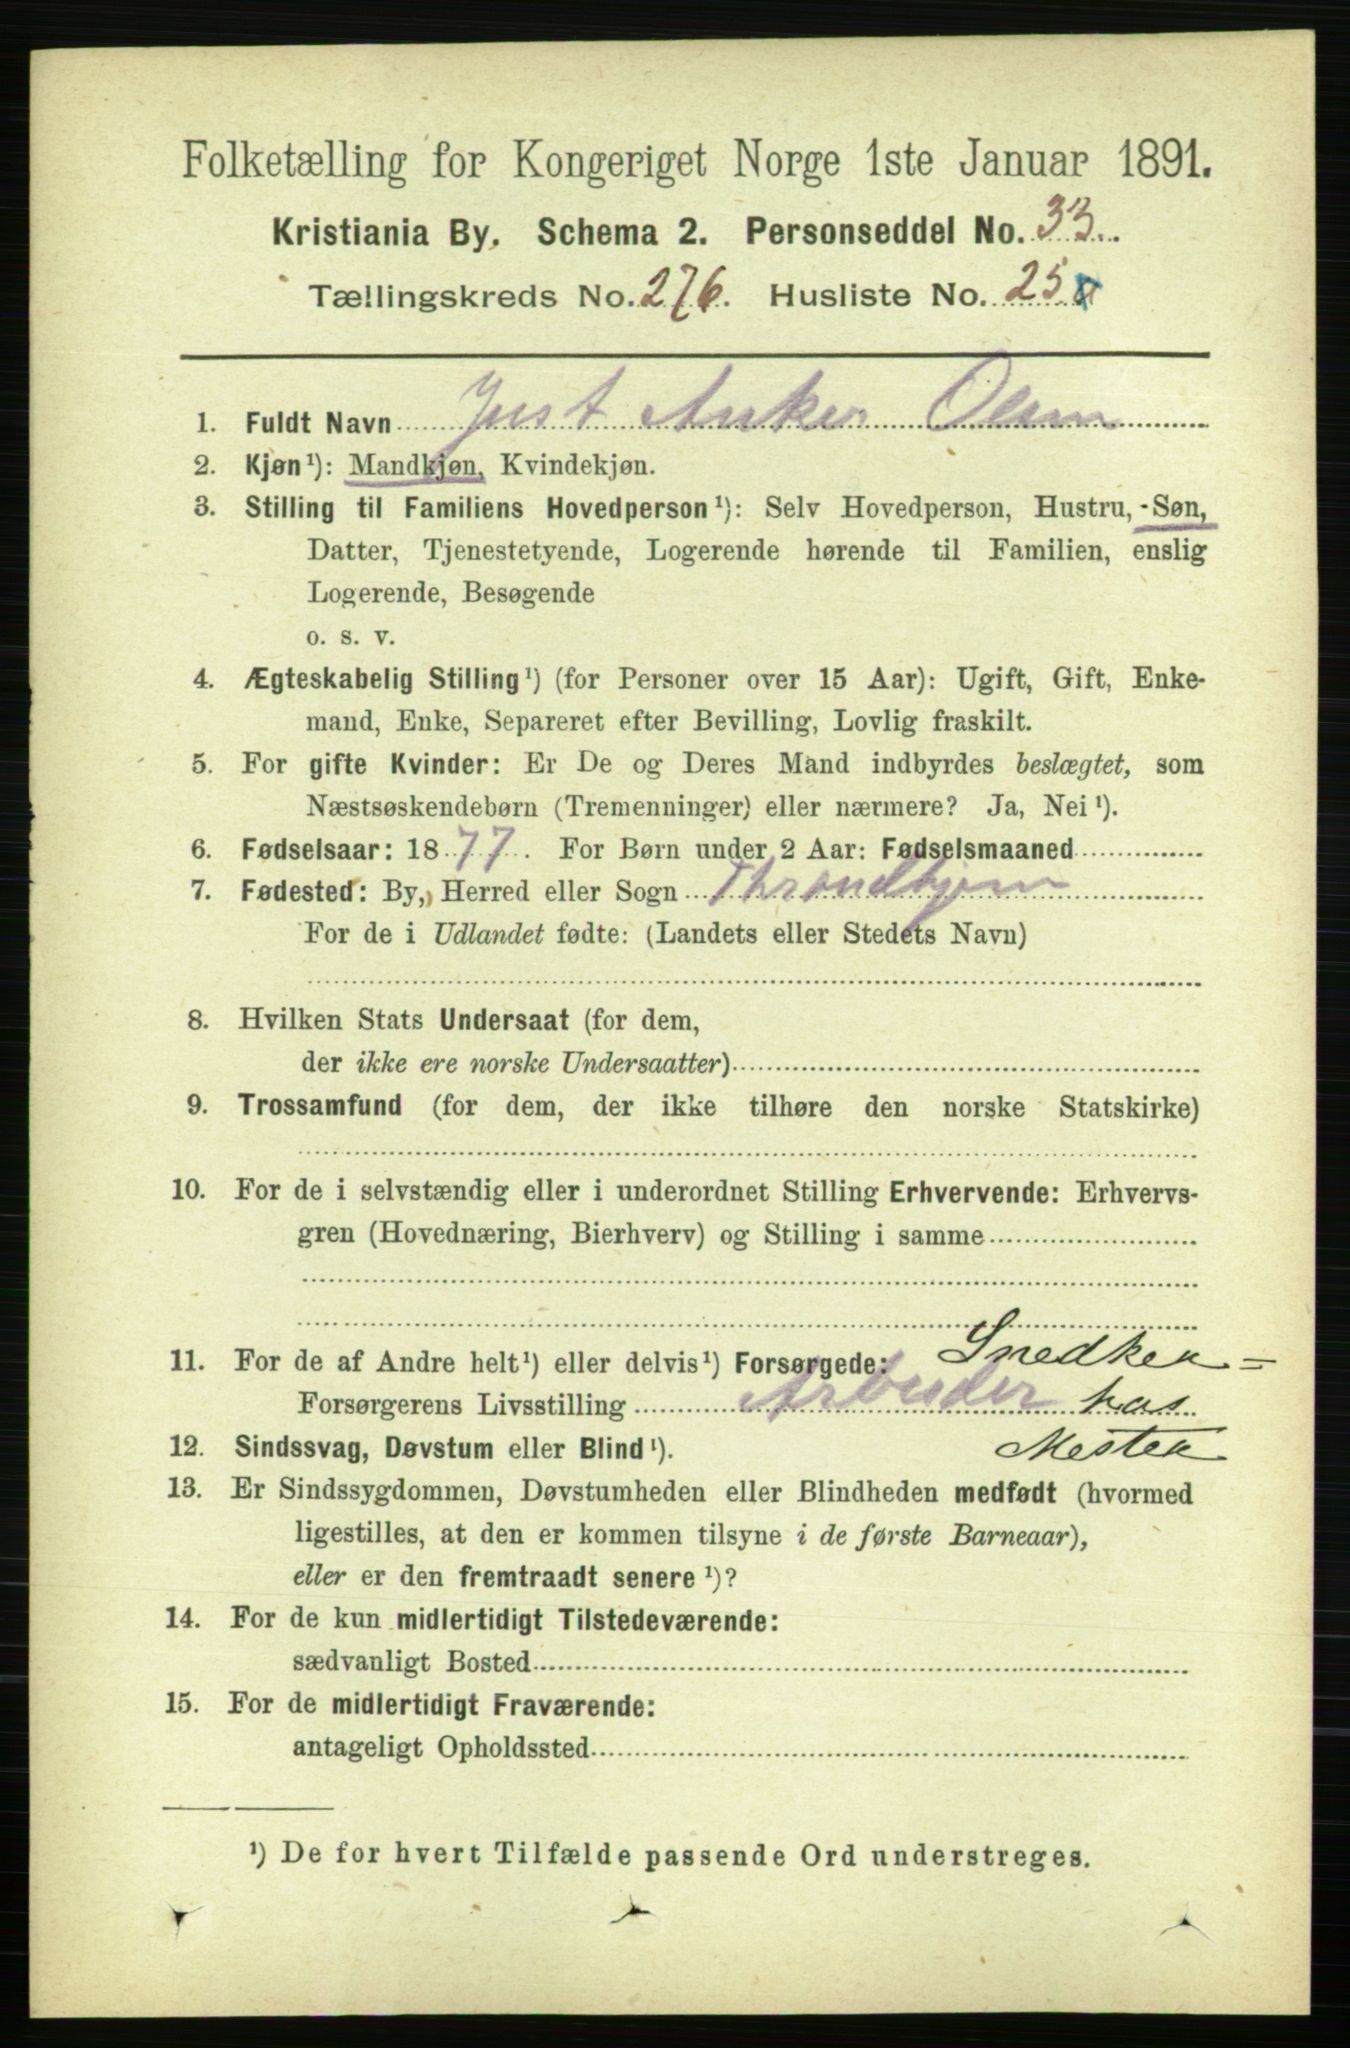 Folketælling for Kongeriget Norge 1ste Januar 1891.
Kristiania By. Schema 2. Personseddel No. 33.
Tællingskreds No. 276. Husliste No. 25
1. Fuldt Navn Just Anker Olsen
2. Kjøn¹): Mandkjøn, Kvindekjøn.
3. Stilling til Familiens Hovedperson¹): Selv Hovedperson, Hustru, Søn,
Datter, Tjenestetyende, Logerende hørende til Familien, enslig
Logerende, Besøgende
o. s. v.
4. Ægteskabelig Stilling¹) (for Personer over 15 Aar): Ugift, Gift, Enke-
mand, Enke, Separeret efter Bevilling, Lovlig fraskilt.
5. For gifte Kvinder: Er De og Deres Mand indbyrdes beslægtet, som
Næstsøskendebørn (Tremenninger) eller nærmere? Ja, Nei¹).
6. Fødselsaar: 1877. For Børn under 2 Aar: Fødselsmaaned
7. Fødested: By, Herred eller Sogn Throndhjem
For de i Udlandet fødte: (Landets eller Stedets Navn)
8. Hvilken Stats Undersaat (for dem,
der ikke ere norske Undersaatter)
9. Trossamfund (for dem, der ikke tilhøre den norske Statskirke)
10. For de i selvstændig eller i underordnet Stilling Erhvervende: Erhvervs-
gren (Hovednæring, Bierhverv) og Stilling i samme
11. For de af Andre helt¹) eller delvis¹) Forsørgede: Snedker=
Forsørgerens Livsstilling Arbeider hos
12. Sindssvag, Døvstum eller Blind¹). Mester
13. Er Sindssygdommen, Døvstumheden eller Blindheden medfødt (hvormed
ligestilles, at den er kommen tilsyne i de første Barneaar),
eller er den fremtraadt senere¹)?
14. For de kun midlertidigt Tilstedeværende:
sædvanligt Bosted
15. For de midlertidigt Fraværende:
antageligt Opholdssted
¹) De for hvert Tilfælde passende Ord understreges.